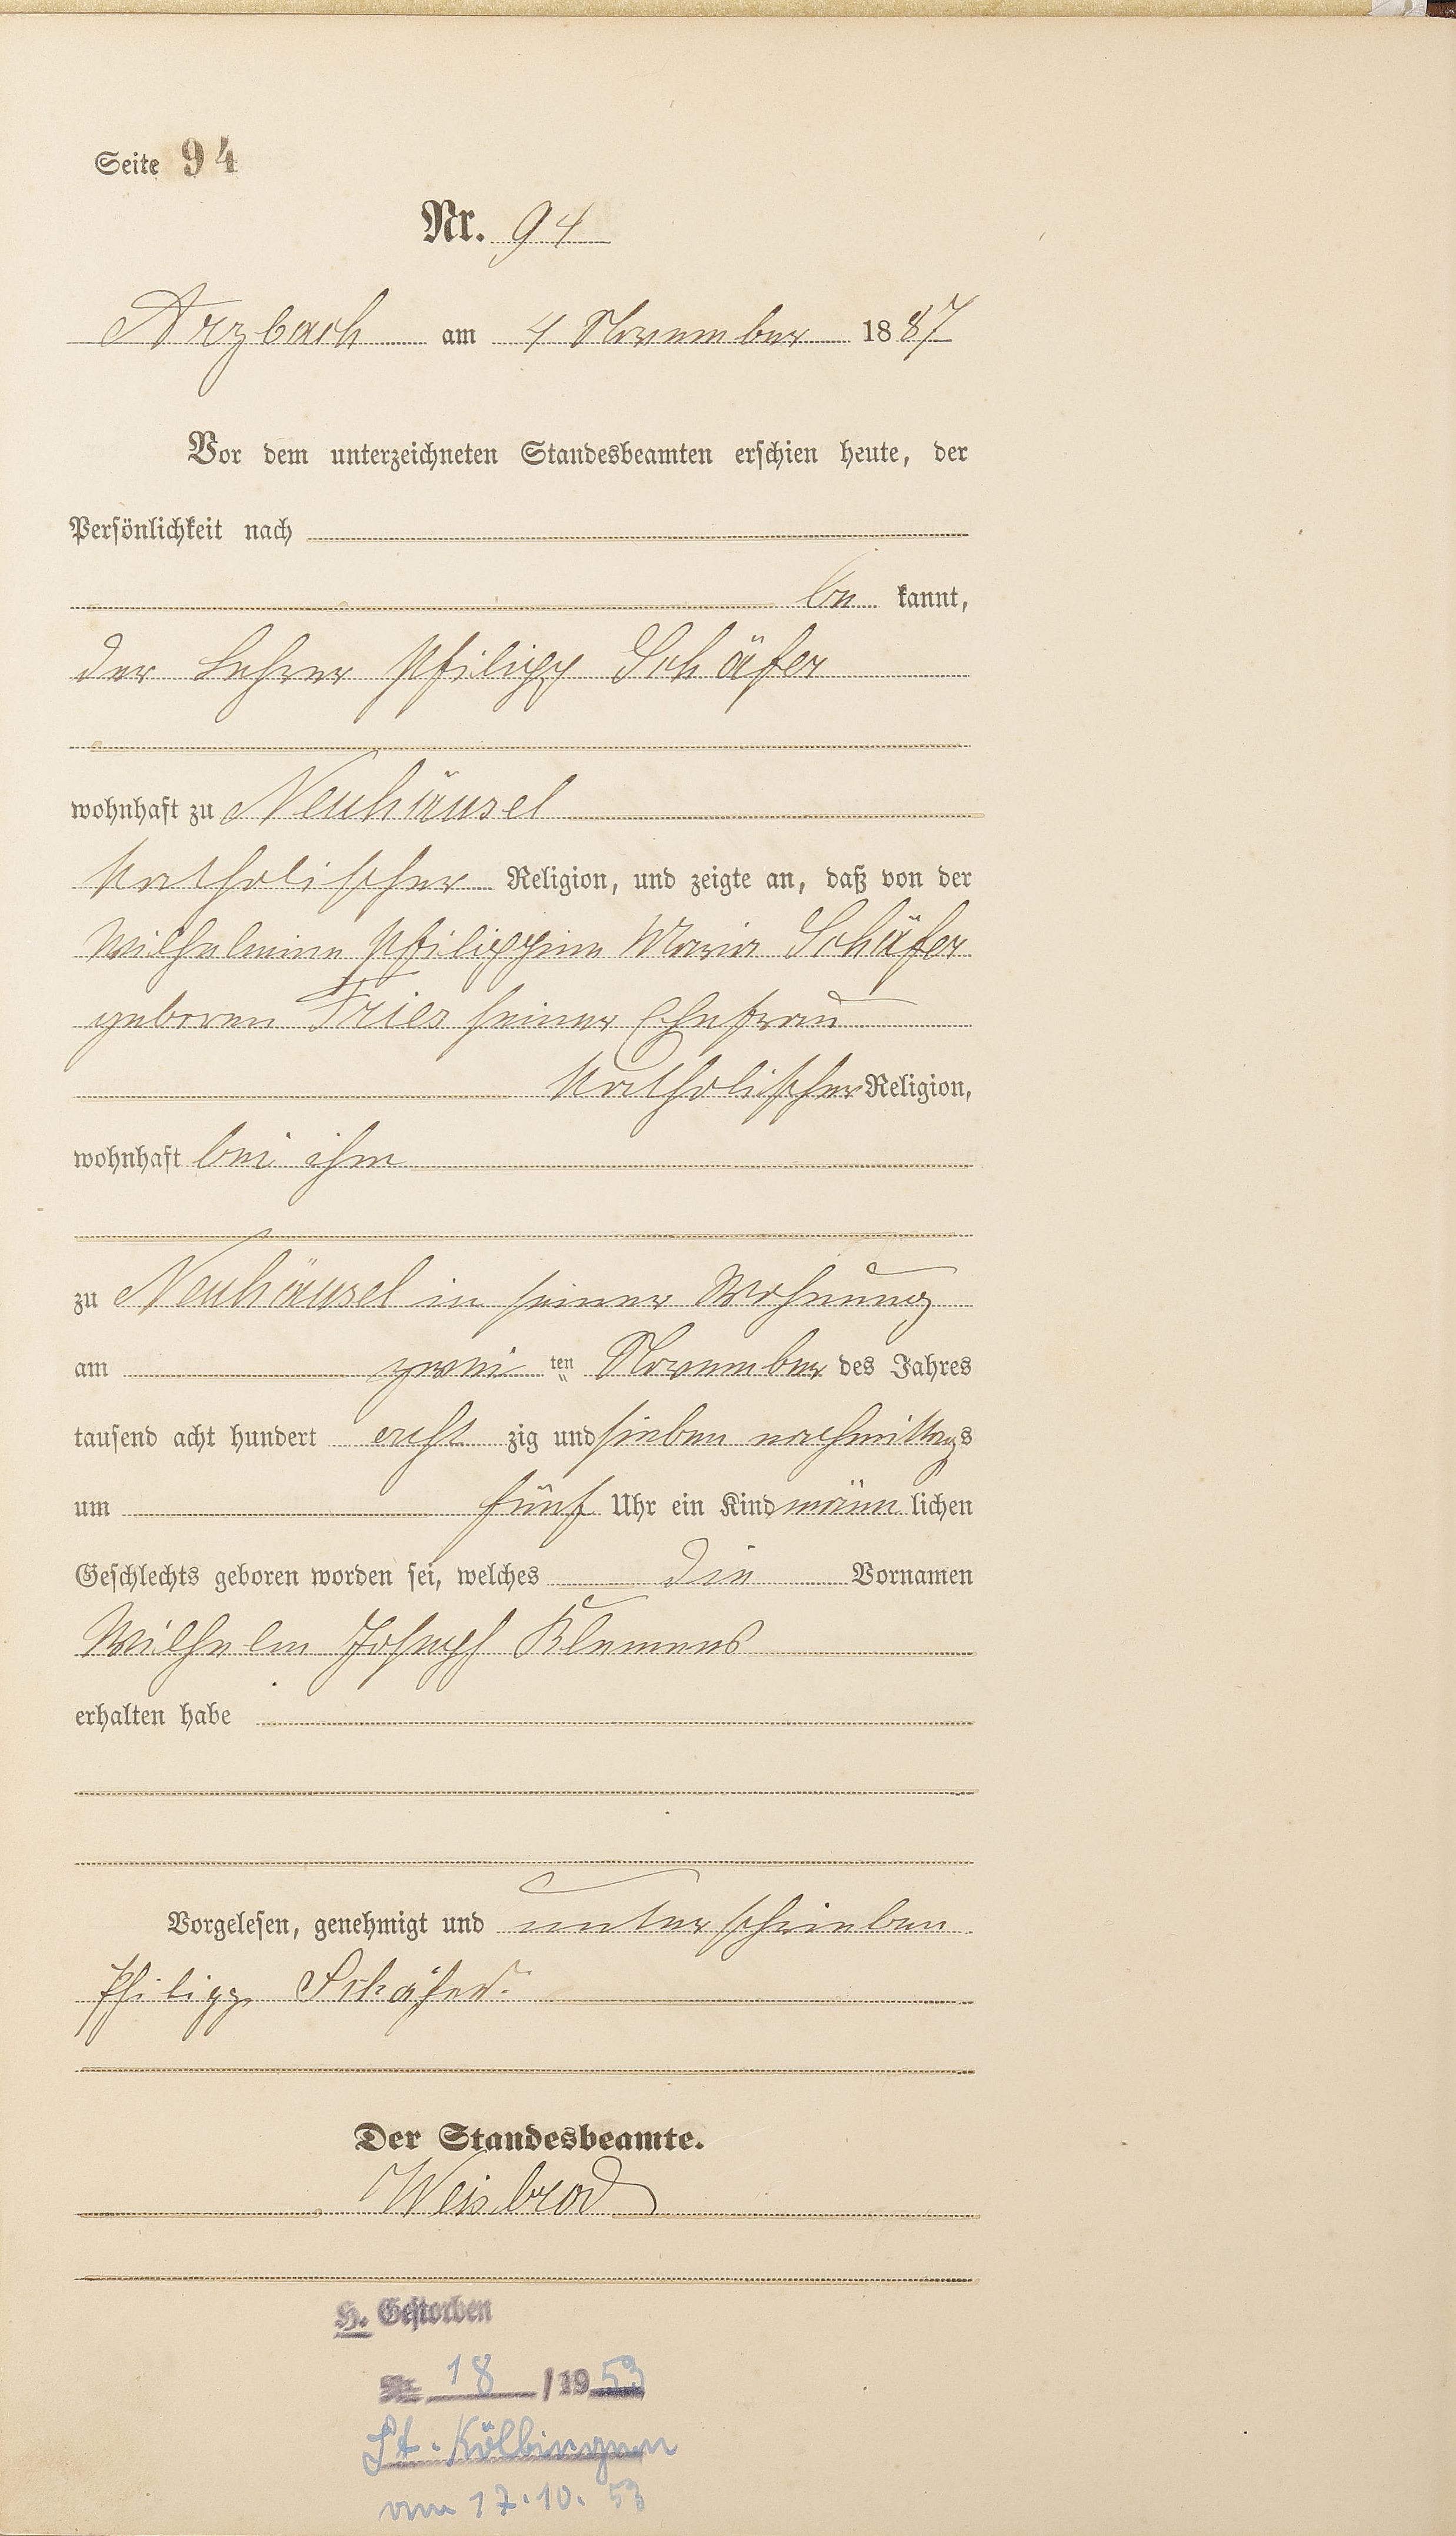 Seite 94
Nr. 94
Arzbach am 4 November 1887
Vor dem unterzeichneten Standesbeamten erschien heute, der
Persönlichkeit nach
be kannt,
der Lehrer Philipp Schäfer
wohnhaft zu Neuhäusel
katholischer Religion, und zeigte an, daß von der
Wilhelmine Philippine Maria Schäfer
geborenen Fries seiner Ehefrau
katholischer Religion,
wohnhaft bei ihm
zu Neuhäusel in seiner Wohnung
am zwei ten November des Jahres
tausend acht hundert acht zig und sieben nachmittags
um fünf Uhr ein Kind männ lichen
Geschlechts geboren worden sei, welches die Vornamen
Wilhelm Joseph Klemens
erhalten habe
Vorgelesen, genehmigt und unterschrieben
Philipp Schäfer.
Der Standesbeamte.
Weisbrod
H. Gestorben
Nr. 18 /1953
St. Kölbingen
vom 17.10.53